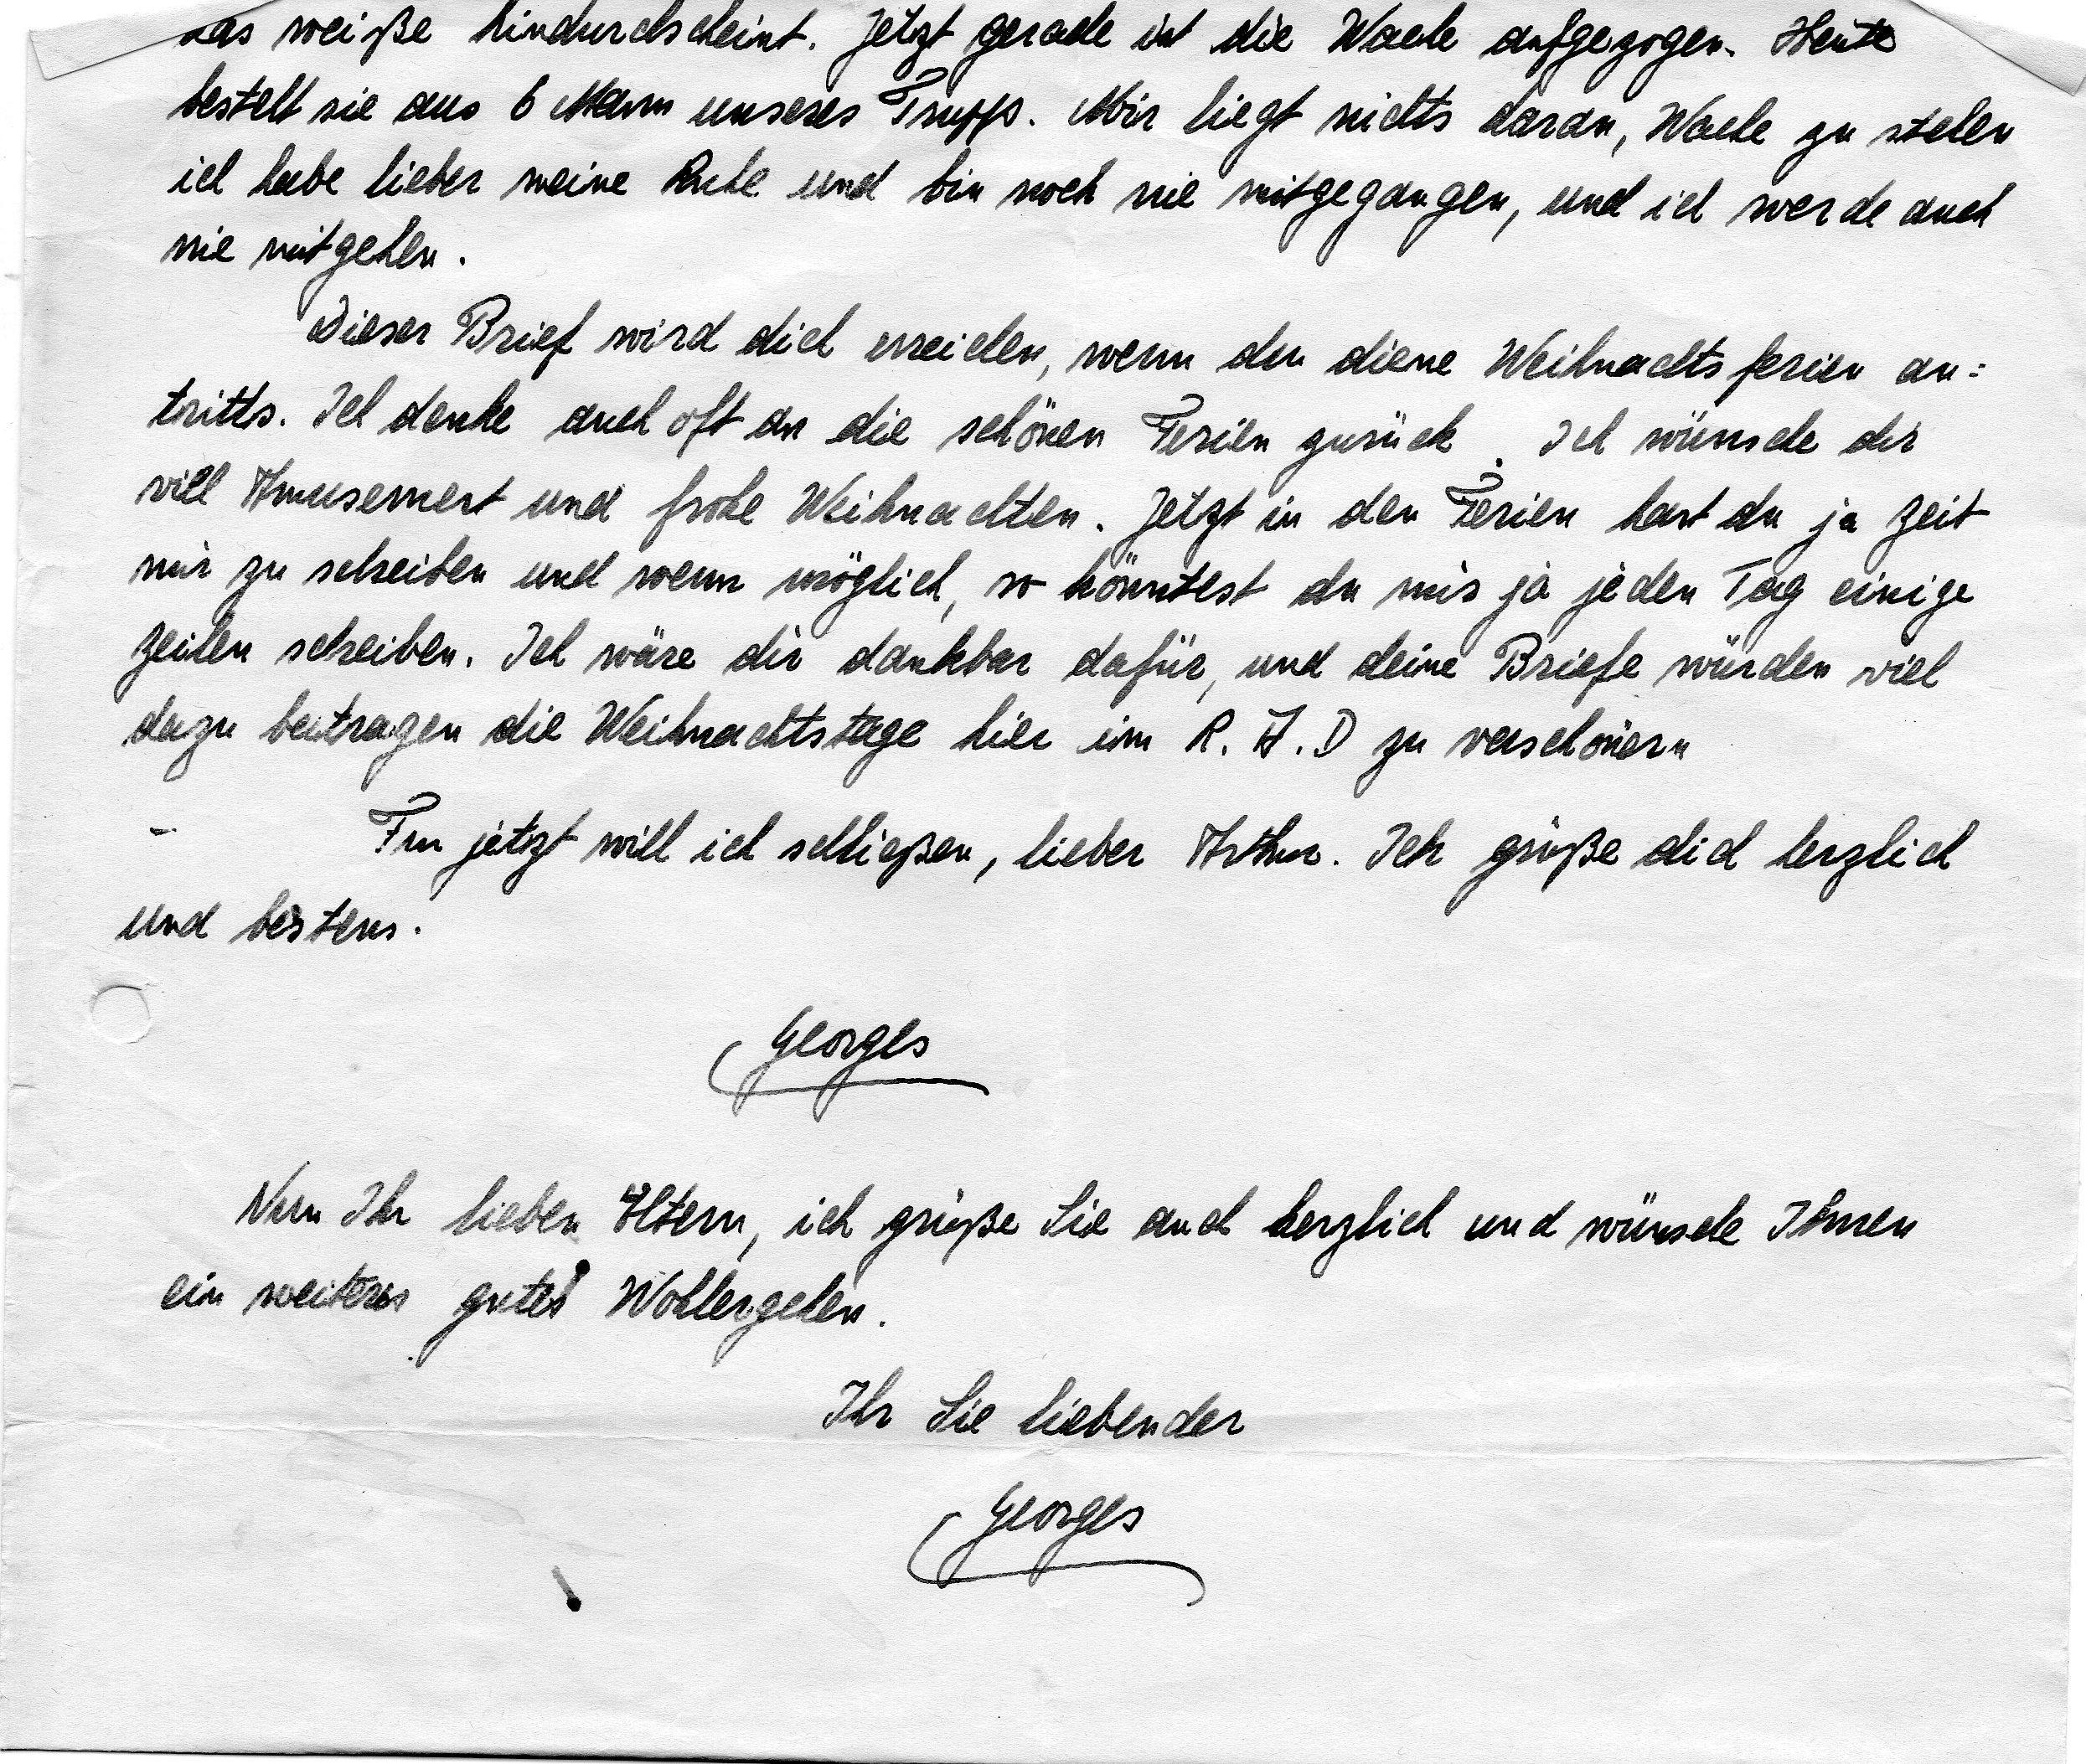 das weiße hindurchscheint. Jetzt gerade ist die Wache aufgezogen. Heute
besteht sie aus 6 Mann unseres Trupps. Mir liegt nichts daran, Wache zu stehen
ich habe lieber meine Ruhe und bin noch nie mitgegangen, und ich werde auch
nie mitgehen.
Dieser Brief wird dich erreichen, wenn du diene Weihnachtsferien an:
tritts. Ich denke auch oft an die schönen Ferien zurück. Ich wünsche dir
vill Amusement und frohe Weihnachten. Jetzt in den Ferien hast du ja Zeit
mir zu schreiben und wenn möglich, so könntest du mir ja jeden Tag einige
Zeilen schreiben. Ich wäre dir dankbar dafür, und deine Briefe würden viel
dazu beitragen die Weihnachtstage hier im R. A. D zu verschönern
Für jetzt will ich schließen, lieber Arthur. Ich grüße dich herzlich
und bestens.
Georges
Nun Ihr lieben Eltern, ich grüße Sie auch herzlich und wünsche Ihnen
ein weiteres gutes Wohlergehen.
Ihr Sie liebender
Georges